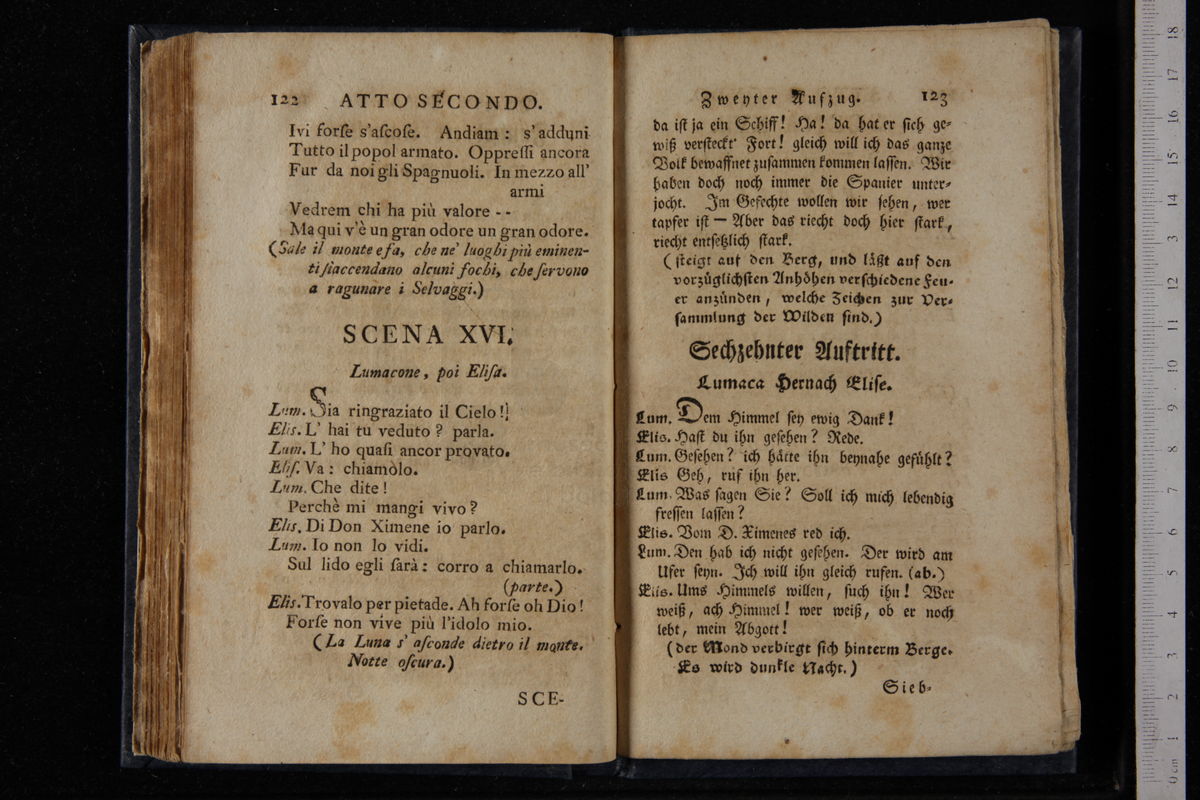 122 ATTO SECONDO.
Ivi forſe s'aſcoſe. Andiam: s'adduni
Tutto il popol armato. Oppreſſi ancora
Fur da noi gli Spagnuoli. In mezzo all'
armi
Vedrem chi ha più valore - -
Ma qui v'è un gran odore un gran odore.
(Sale il monte e fa, che ne' luoghi più eminen-
ti ſi accendano alcuni fochi, che ſervono
a ragunare i Selvaggi.)
SCENA XVI.
Lumacone, poi Eliſa.
Lum. Sia ringraziato il Cielo!
Elis. L' hai tu veduto? parla.
Lum. L' ho quaſi ancor provato.
Eliſ. Va: chiamòlo.
Lum. Che dite!
Perchè mi mangi vivo?
Elis. Di Don Ximene io parlo.
Lum. Io non lo vidi.
Sul lido egli ſarà: corro a chiamarlo.
(parte.)
Elis. Trovalo per pietade. Ah forſe oh Dio!
Forſe non vive più l'idolo mio.
(La Luna s' aſconde dietro il monte.
Notte oſcura.)
SCE-
Zweyter Aufzug. 123
da iſt ja ein Schiff! Ha! da hat er ſich ge-
wiß verſteckt' Fort! gleich will ich das ganze
Volk bewaffnet zuſammen kommen laſſen. Wir
haben doch noch immer die Spanier unter-
jocht. Im Gefechte wollen wir ſehen, wer
tapfer iſt — Aber das riecht doch hier ſtark,
riecht entſetzlich ſtark.
(ſteigt auf den Berg, und läßt auf den
vorzüglichſten Anhöhen verſchiedene Feu-
er anzünden, welche Zeichen zur Ver-
ſammlung der Wilden ſind.)
Sechzehnter Auftritt.
Lumaca Hernach Eliſe.
Lum. Dem Himmel ſey ewig Dank!
Elis. Haſt du ihn geſehen? Rede.
Lum. Geſehen? ich hätte ihn beynahe gefühlt?
Elis Geh, ruf ihn her.
Lum. Was ſagen Sie? Soll ich mich lebendig
freſſen laſſen?
Elis. Vom D. Ximenes red ich.
Lum. Den hab ich nicht geſehen. Der wird am
Ufer ſeyn. Ich will ihn gleich rufen. (ab.)
Elis. Ums Himmels willen, ſuch ihn! Wer
weiß, ach Himmel! wer weiß, ob er noch
lebt, mein Abgott!
(der Mond verbirgt ſich hinterm Berge.
Es wird dunkle Nacht.)
Sieb-
0 cm 1 2 3 4 5 6 7 8 9 10 11 12 13 14 15 16 17 18